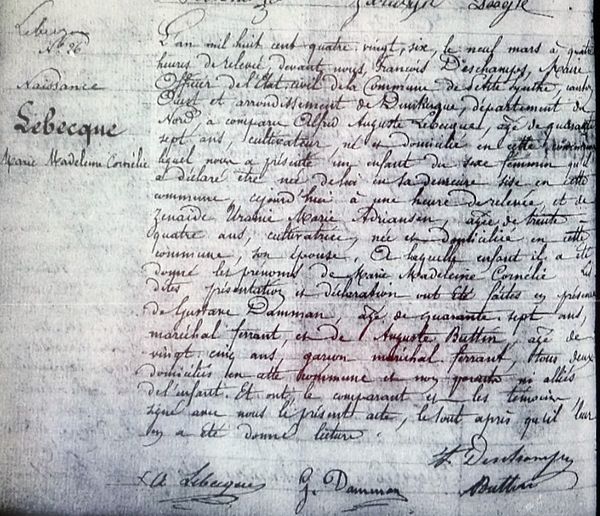 N° 26
Naissance
Lebecque
Marie Madeleine Cornélie
L'an mil huit cent quatre vingt, six, le neuf mars à quatre
heures de relevée devant nous, François Deschamps, Maire
Officier de l'Etat civil de la Commune de Petite Synthe, canton
Ouest et arrondissement de Dunkerque, département du
Nord, a comparu Alfred Auguste Lebecque, âgé de quarante
sept ans, cultivateur, né et domicilié en cette commune
lequel nous a présenté un enfant du sexe féminin qu'il
a déclaré être née de lui en sa demeure sise en cette
commune, cejourd'hui à une heure de relevée, et de
Zenaïde Uranie Marie Adriansen, âgée de trente
quatre ans, cultivatrice, née et domiciliée en cette
commune, son épouse. A laquelle enfant il a été
donné les prénoms de Marie Madeleine Cornélie Les
dites présentation et déclaration ont été faites en présence
de Gustave Damman, âgé de quarante sept ans,
maréchal ferrant, et de Auguste Buttin, âgé de
vingt cinq ans, garçon maréchal ferrant, tous deux
domiciliés en cette commune et non parents ni alliés
de l'enfant. Et ont le comparant et les témoins
signé avec nous le présent acte, le tout après qu'il leur
en a été donné lecture.
F. Deschamps
A Lebecque G. Damman Buttin